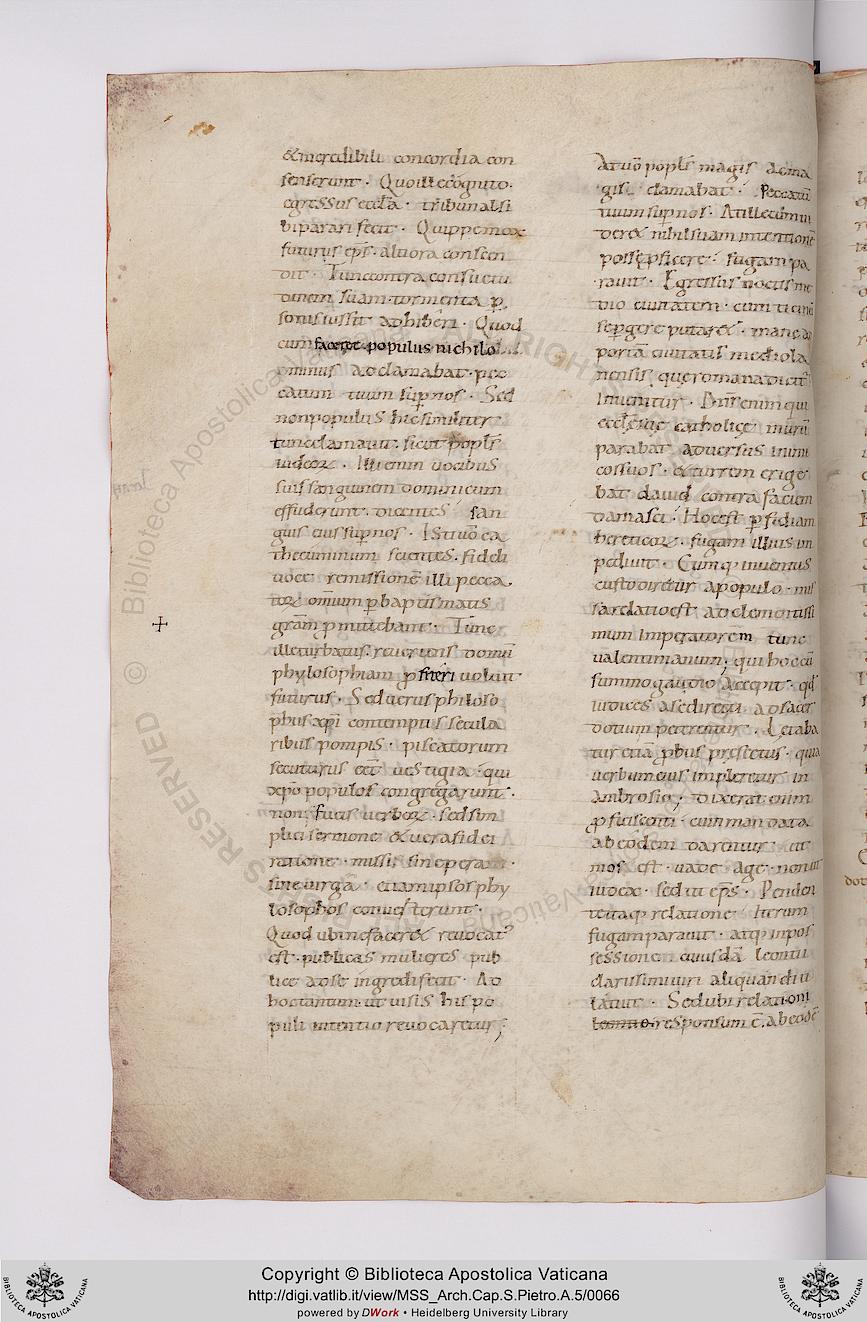 & incredibili concordia con
senserunt · Quo ille cognito ·
egressus eccl̄a · tribunal si
bi parari fecit · Quippe mox
futurus ep̄s · altiora conscen
dit · Tunc contra consuetu
dinem suam · tormenta p̲
sonis iussit adhiberi · Quod
cum faceret populus nichilo
ominus adclamabat · pec
catum tuum sup̄ nos · Sed
non populus hic similiter
tunc clamavit · sicut popls̄
iudeoꝝ · Illi enim vocibus
suis sanguinem dominicum
effuderunt · dicentes san
guis eius sup̄ nos · Isti vō ca
thecuminum scientes · fideli
voce remissionē illi pecca
toꝝ omīum p̲ baptismatis
grām p̲mittebant · Tunc
ille turbatus · revertens domū
phylosophiam ꝓfiteri voluit
futurus · Sed verus philoso
phus xp̄i contemptis secula
ribus pompis · piscatorum
secuturus eēt vestigia · qui
xp̄o populos congregarunt ·
non fucis verboꝝ · sed sim
plici sermone & vera fidei
ratione · missi sine pera ·
sine virga · etiam ipsos phy
losophos converterunt ·
Quod ubi ne facer& revocat᾽
est · publicas mulieres pub
lice ad se ingredi fecit · Ad
hoc tantum · ut visis his po
puli intentio revocaretur ;
At vō popls̄ magis ac ma
gis · clamabat · Peccatū
tuum sup̄ nos · At ille cum vi
der& nihil suam intentionē
posse ꝓficere · fugam pa
ravit · Egressus noctis me
dio civitatem · cum ticinū
se p̲gere putar& · mane ad
portā civitatis mediola
nensis · quę romana dicit᾽
invenitur · D̄s̄ enim qui
ecclesię catholicę murū
parabat adversus inimi
cos suos · & turrem erige
bat david contra faciem
damasci · Hoc est p̲fidiam
hereticoꝝ · fugam illius im
pedivit · Cumq; inventus
custodiretur a populo · mis
sa relatio est ad clementissi
mum imperatorem tunc
valentinianum, qui hoc cū
summo gaudio accepit · qđ
iudices a se directi ad sacer
dotium peterentur · Lętaba
tur etiā ꝓbus prefectus · quia
verbum eius impleretur in
Ambrosio ; dixerat enim
ꝓficiscenti · cum mandata
ab eodem darentur · ut
mos est · vade age · non ut
iudex · sed ut ep̄s · Penden
te itaq; relatione iterum
fugam paravit · atq; in pos
sessionem cuiusdā leontii
clarissimi viri aliquandiu
latuit · Sed ubi relationi
responsum ē · ab eodē
Copyright © Biblioteca Apostolica Vaticana
http://digi.vatlib.it/view/MSS_Arch.Cap.S.Pietro.A.5/0066
powered by DWork • Heidelberg University Library